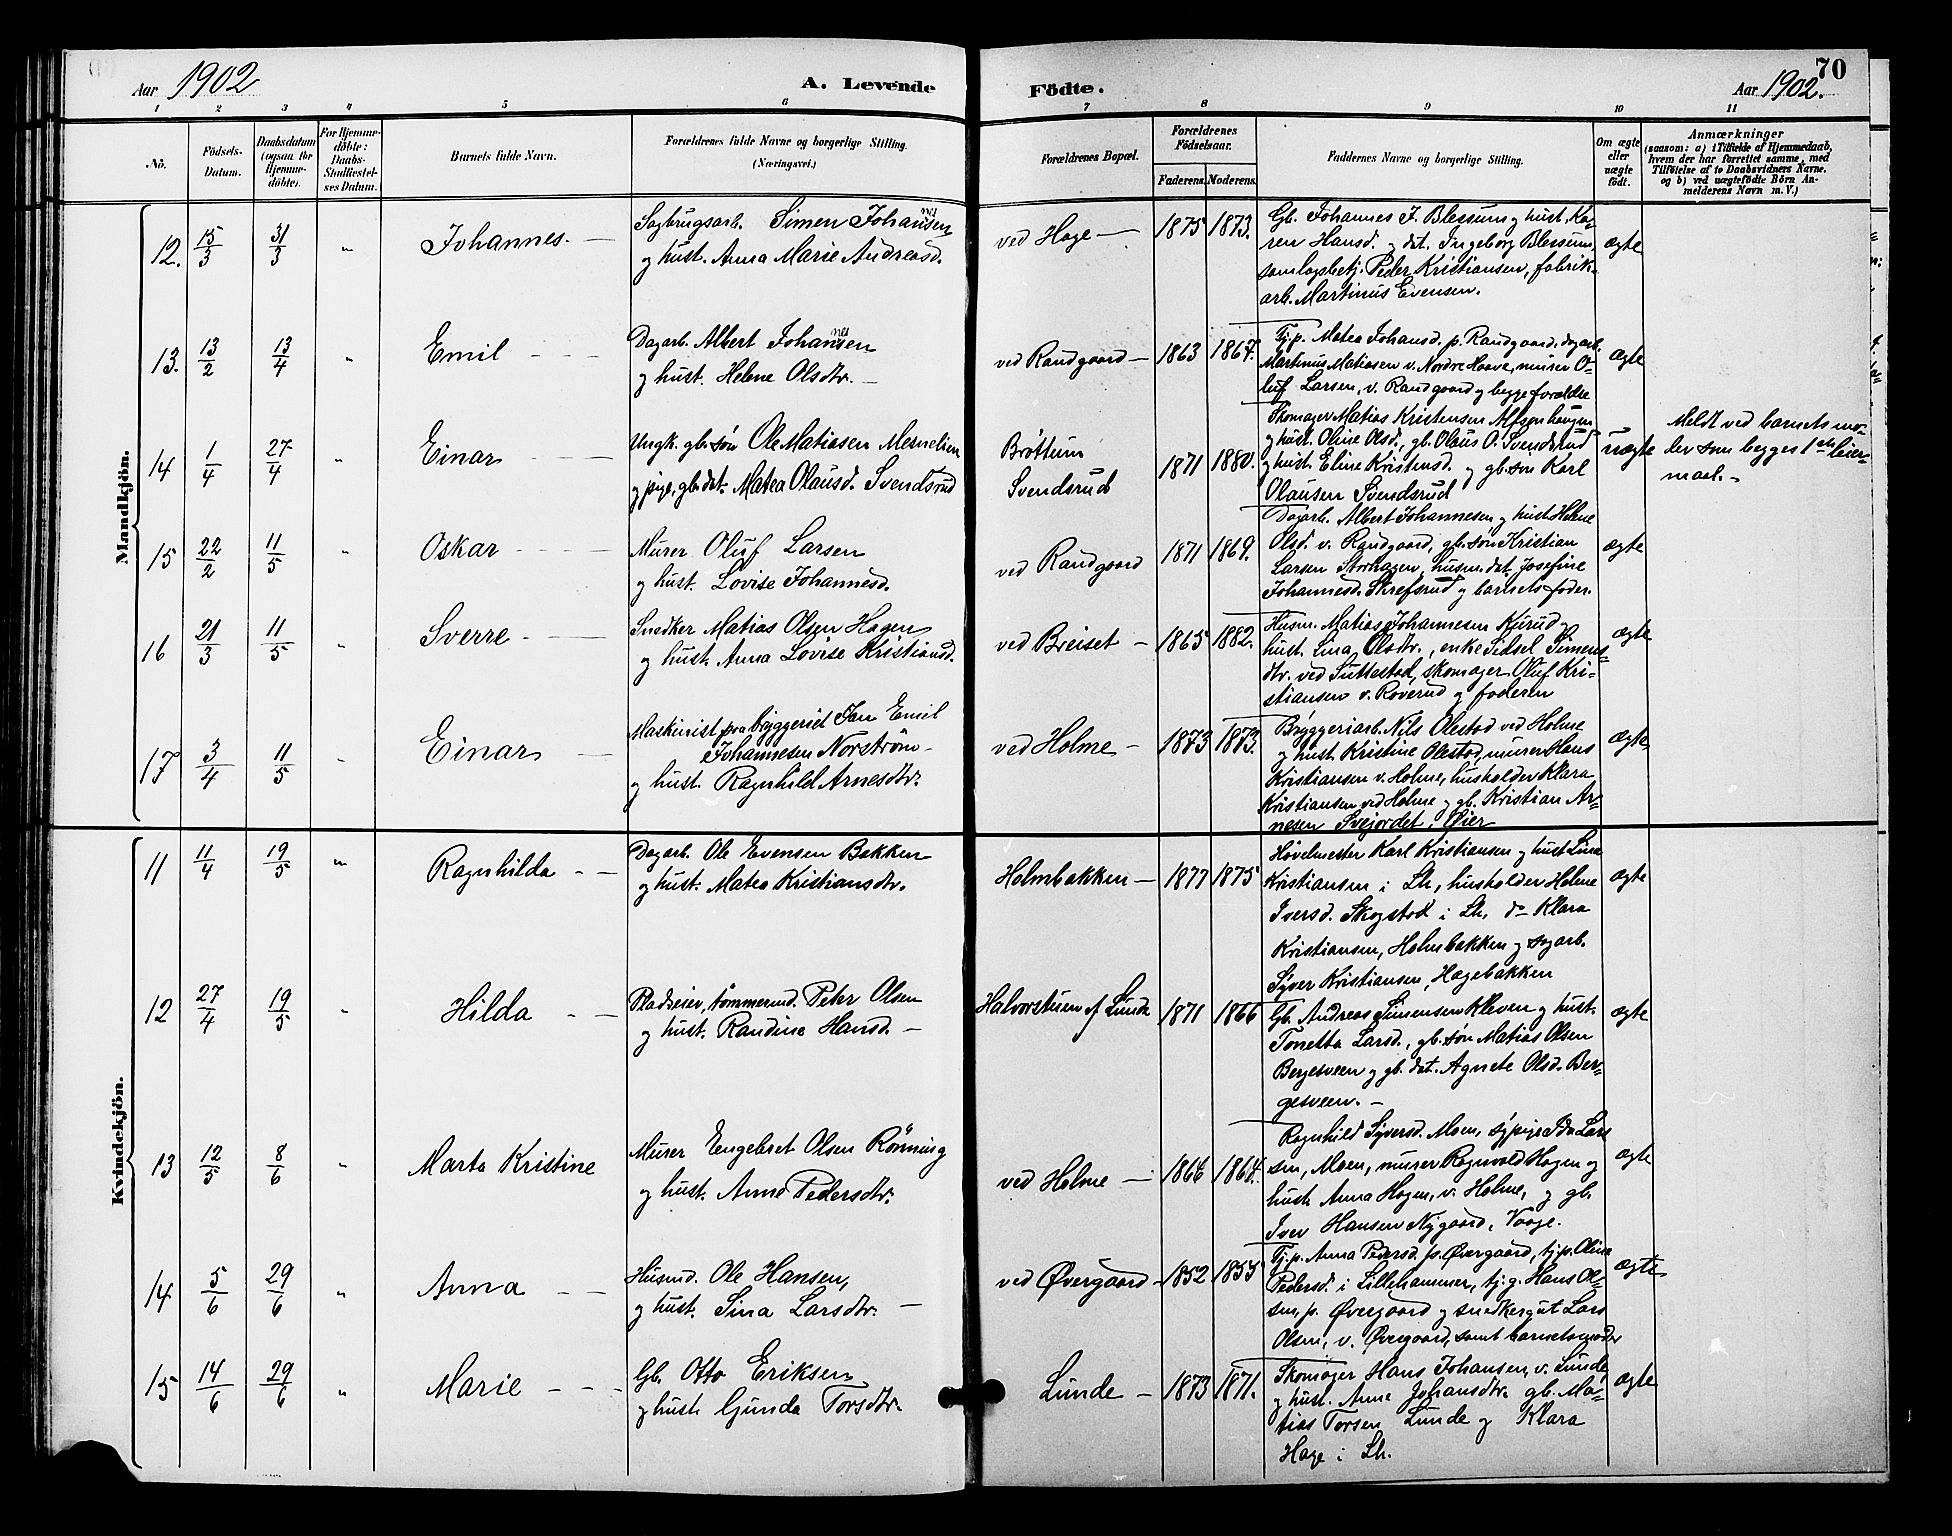 Aar 1902
A. Levende
Födte.
70
Aar 1902.
1 2 3 4 5 6 7 8 9 10 11
No.
Födsels-
Datum.
Daabsdatum
(ogsaa for
Hjemme-
döbte).
For Hjemme-
döbte:
Daabs-
Stadfæstel-
ses Datum.
Barnets fulde Navn.
Forældrenes fulde Navne og borgerlige Stilling.
(Næringsvei.)
Forældrenes Bopæl.
Forældrenes
Födselsaar.
Faderens. Moderens.
Faddernes Navne og borgerlige Stilling.
Om ægte
eller
uægte
födt.
Anmærkninger
(saasom: a) i Tilfælde af Hjemmedaab,
hvem der har forrettet samme, med
Tilföielse af to Daabsvidners Navne,
og b) ved uægtefödte Börn An-
melderens Navn m. V.)
Mandkjön.
12. 15/3 31/3 " Johannes.
Sagbrugsarb. Simen Johansen
og hust. Anna Marie Andreasd.
ved Hage 1875 1873.
Gb. Johannes J. Blessum og hust. Ka-
ren Hansd. og dat. Ingeborg Blessum,
samlagsbetj. Peder Kristiansen, fabrik-
arb. Martinus Evensen.
ægte
13. 13/2 13/4 " Emil
Dagarb. Albert Johannesen
og hust. Helene Olsdtr.
ved Randgaard 1863 1864.
Tj.p. Matea Johansd. p. Randgaard, dagarb.
Martinus Matiasen v. Nordre Haave, murer O-
luf Larsen, v. Randgaard og begge forældre
ægte
14 1/4 27/4 " Einar
Ungk. gb. søn Ole Matiasen
og pige, gb. dat. Matea Olausd. Svendsrud
Brøttum
Svendsrud
1871 1880.
Skomager Matias Kristensen
og hust. Oline Olsd., gb. Olaus O. Svendsrud
og hust. Eline Kristensd. og gb. søn Karl
Olausen Svendsrud
uægte
Meldt ved barnets mo-
der som begges 1ste leier-
maal.
15 22/2 11/5 " Oskar
Murer Oluf Larsen
og hust. Lovise Johannesd.
ved Randgaard 1871 1869.
Dagarb. Albert Johannesen og hust. Helene
Olsd. v. Randgaard, gb. søn Kristian
Larsen Storhagen, husm. dat. Josefine
Johannesd. Skrefsrud og barnets fader.
ægte
16 21/3 11/5 " Sverre
Snedker Matias Olsen Hagen
og hust. Anna Lovise Kristiansd.
ved Breiset 1865 1882.
Husm. Matias Johannesen Kurud og
hust. Lina Olsdtr., enke Sidsel Simens-
dtr. ved Suttestad, skomager Oluf Kri-
stiansen v. Røverud og faderen
ægte
17 3/4 11/5 " Einar
Maskinist paa bryggeriet Jan Emil
Johannesen Norstrøm
og hust. Ragnhild Arnesdtr.
ved Holme 1873 1873.
Bryggeriarb. Nils Olestad ved Holme
og hust. Kristine Olestad, murer Hans
Kristiansen v. Holme, husholder Klara
Kristiansen ved Holme og gb. Kristian Ar-
nesen Svejordet, Øier
ægte
Kvindekjön.
11 11/4 19/5 " Ragnhilda
Dagarb. Ole Evensen Bakken
og hust. Matea Kristiansdtr.
Holmbakken 1877 1875
Høvelmester Karl Kristiansen og hust. Lina
Kristiansen i Lh., husholder Helene
Iversd. Skogstad i Lh. do Klara
Kristiansen, Holmbakken og sagarb.
Syver Kristiansen, Hagebakken
ægte
12 27/4 19/5 " Hilda
Pladseier, tømmermd. Peter Olsen
og hust. Randine Hansd.
Halvorstuen af Lunde 1871 1866
Gb. Andreas Simensen Kleven og hust.
Tonetta Larsd., gb. søn Matias Olsen
Bergesveen og gb. dat. Agnete Olsd. Ber-
gesveen.
ægte
13 12/5 8/6 " Marta Kristine
Murer Engebret Olsen Rönning
og hust. Anne Pedersdtr.
ved Holme 1866 1864.
Ragnhild Syversd. Moen, sypige Ida Lar-
sen, Moen, murer Ragnvald Hagen og
hust. Anna Hagen, v. Holme, og gb.
Iver Hansen Nygaard, Vaage.
ægte
14 5/6 29/6 " Anna
Husmd. Ole Hansen,
og hust. Sina Larsdtr.
ved Øvergaard 1852 1855
Tj.p. Anna Pedersd. p. Øvergaard, tj.p. Oline
Pedersd. i Lillehammer, tj.g. Hans Ol-
sen, p. Øvergaard og snedkergut Lars
Olsen, v. Øvergaard, samt barnets moder
ægte
15 14/6 29/6 " Marie
Gb. Otto Eriksen
og hust. Gunda Torsdtr.
Lunde 1873 1871.
Skomager Hans Johansen, v. Lunde,
og hust. Anne Johansdtr. gb. Ma-
tias Torsen Lunde og Klara
Hage i Lh.
ægte